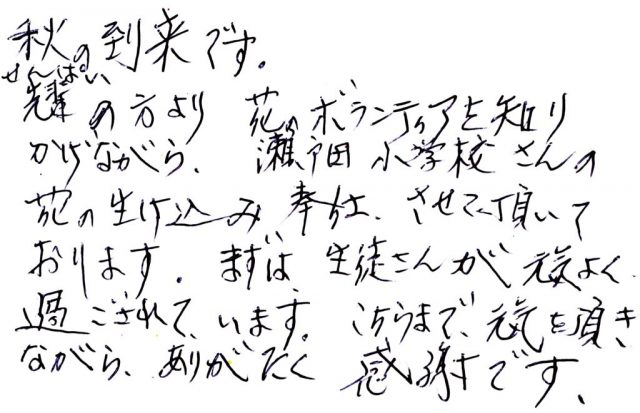 秋の到来です。
せんぱい
先輩の方より 花のボランティアを知り
かげながら、瀬田小学校さんの
花の生け込み奉仕、させて頂いて
おります。まずは、生徒さんが元気よく
過ごされています。こちらまで、元気を頂き
ながら、ありがたく感謝です、